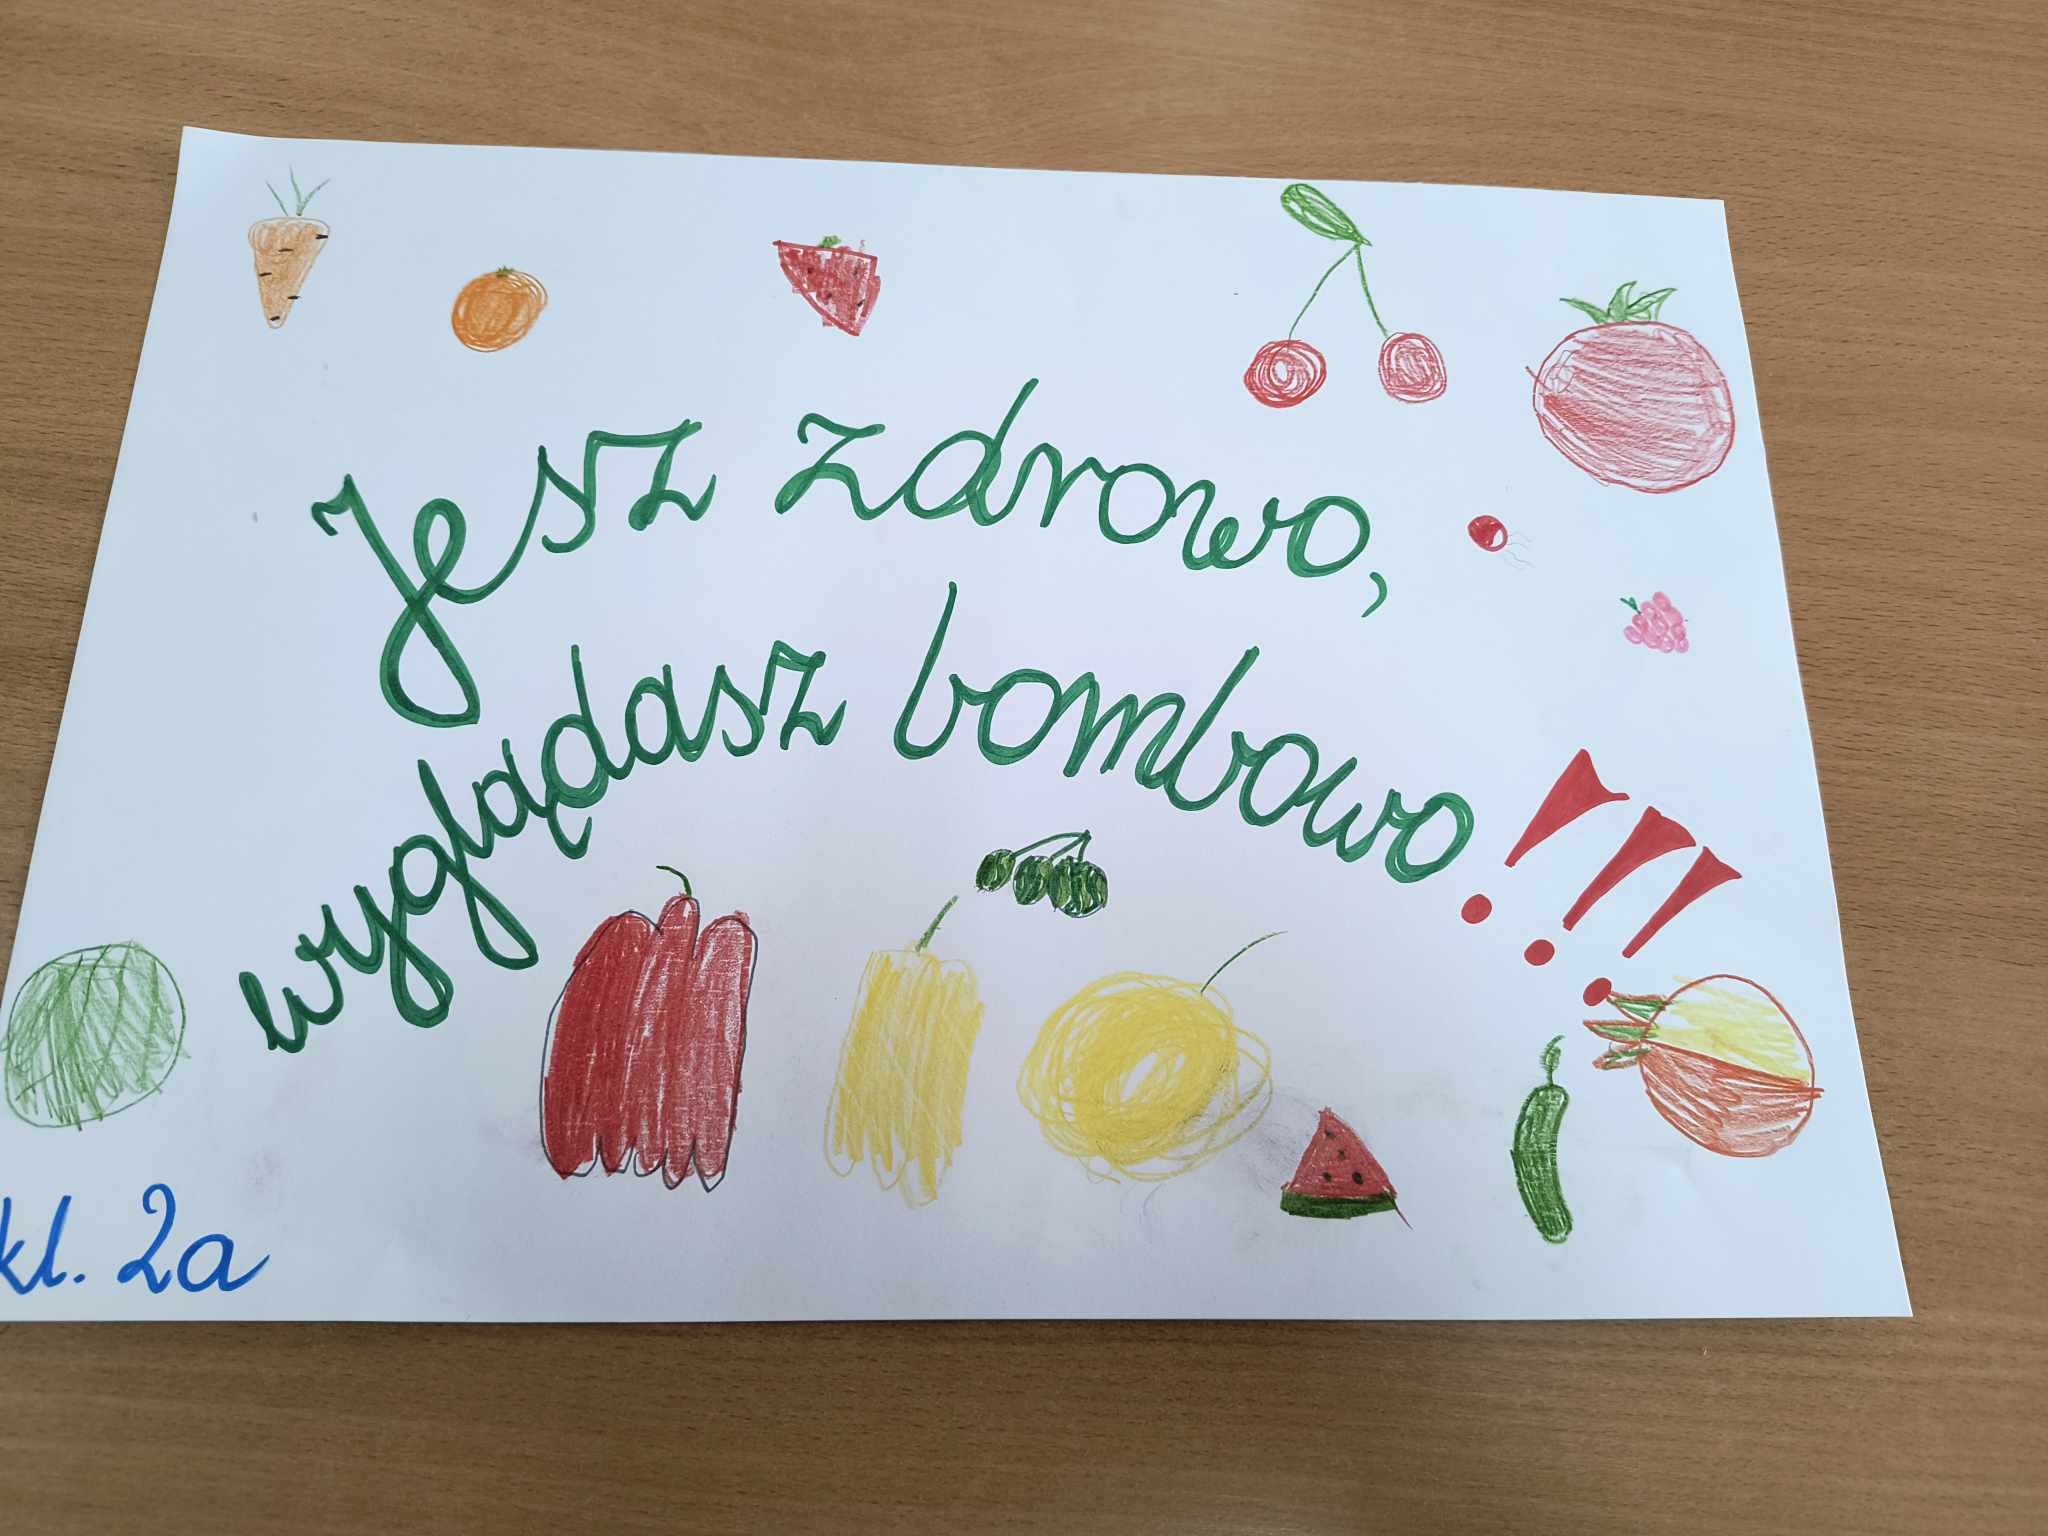 Jesz zdrowo,
wyglądasz bombowo!!!
kl. 2a